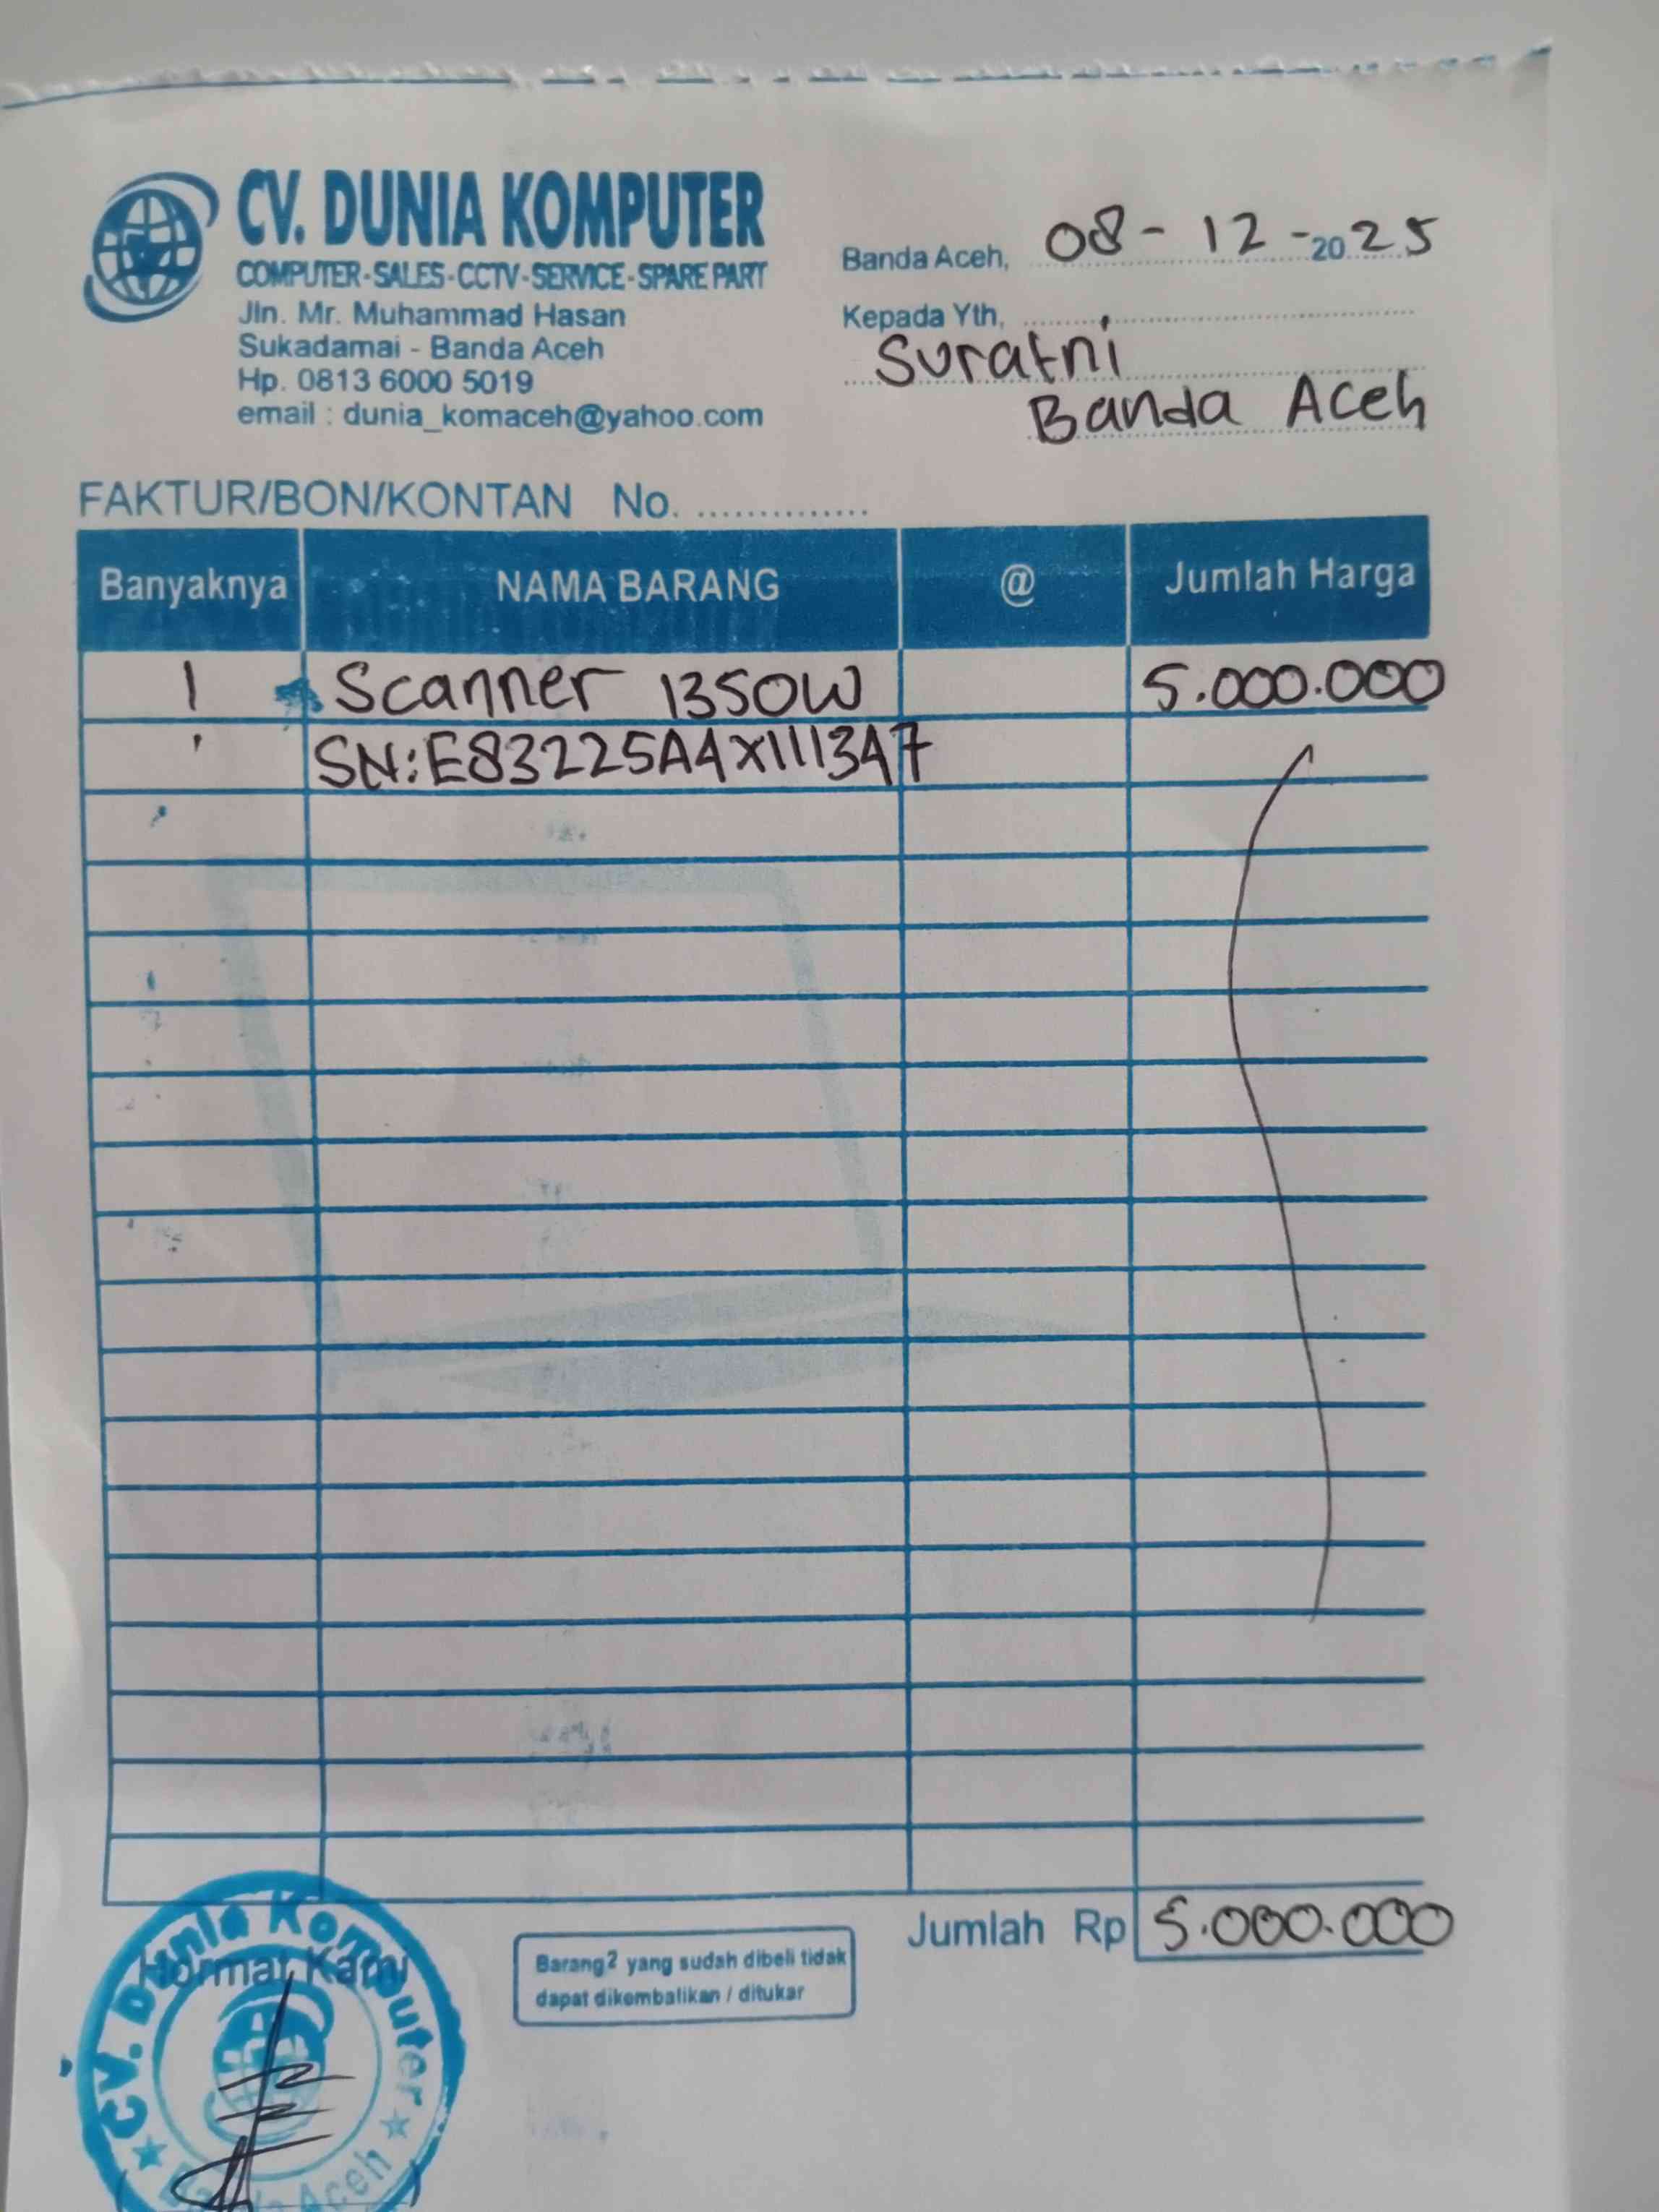 CV. DUNIA KOMPUTER
COMPUTER - SALES - CCTV - SERVICE - SPARE PART
Jln. Mr. Muhammad Hasan
Sukadamai - Banda Aceh
Hp. 0813 6000 5019
email : dunia_komaceh@yahoo.com
Banda Aceh, 08 - 12 - 2025
Kepada Yth,
Suratni
Banda Aceh
FAKTUR/BON/KONTAN No. ..............
Banyaknya NAMA BARANG @ Jumlah Harga
1 Scanner 1350W 5.000.000
SN: E83225A4X111347
Jumlah Rp 5.000.000
Barang2 yang sudah dibeli tidak
dapat dikembalikan / ditukar
Hormat Kami
CV. Dunia Komputer
Banda Aceh